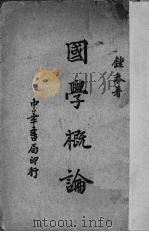 鍾泰著
國學概論
中華書局印行